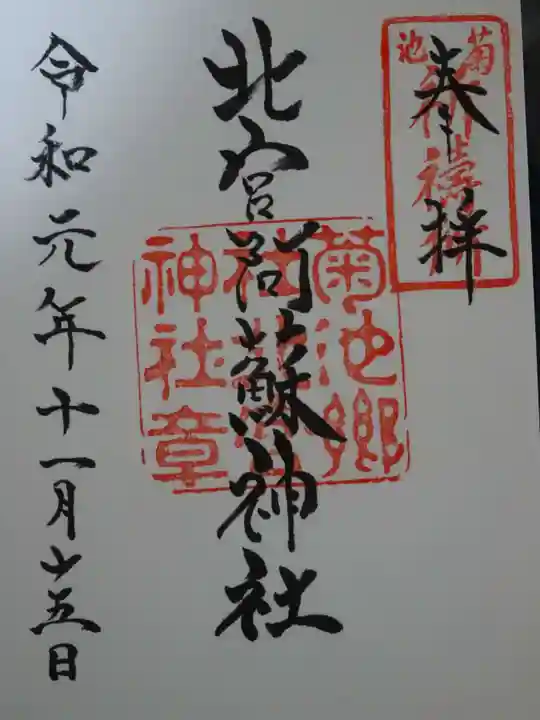 奉拝
菊池
北宮阿蘇神社
菊池郷
神社章
令和元年十一月十五日